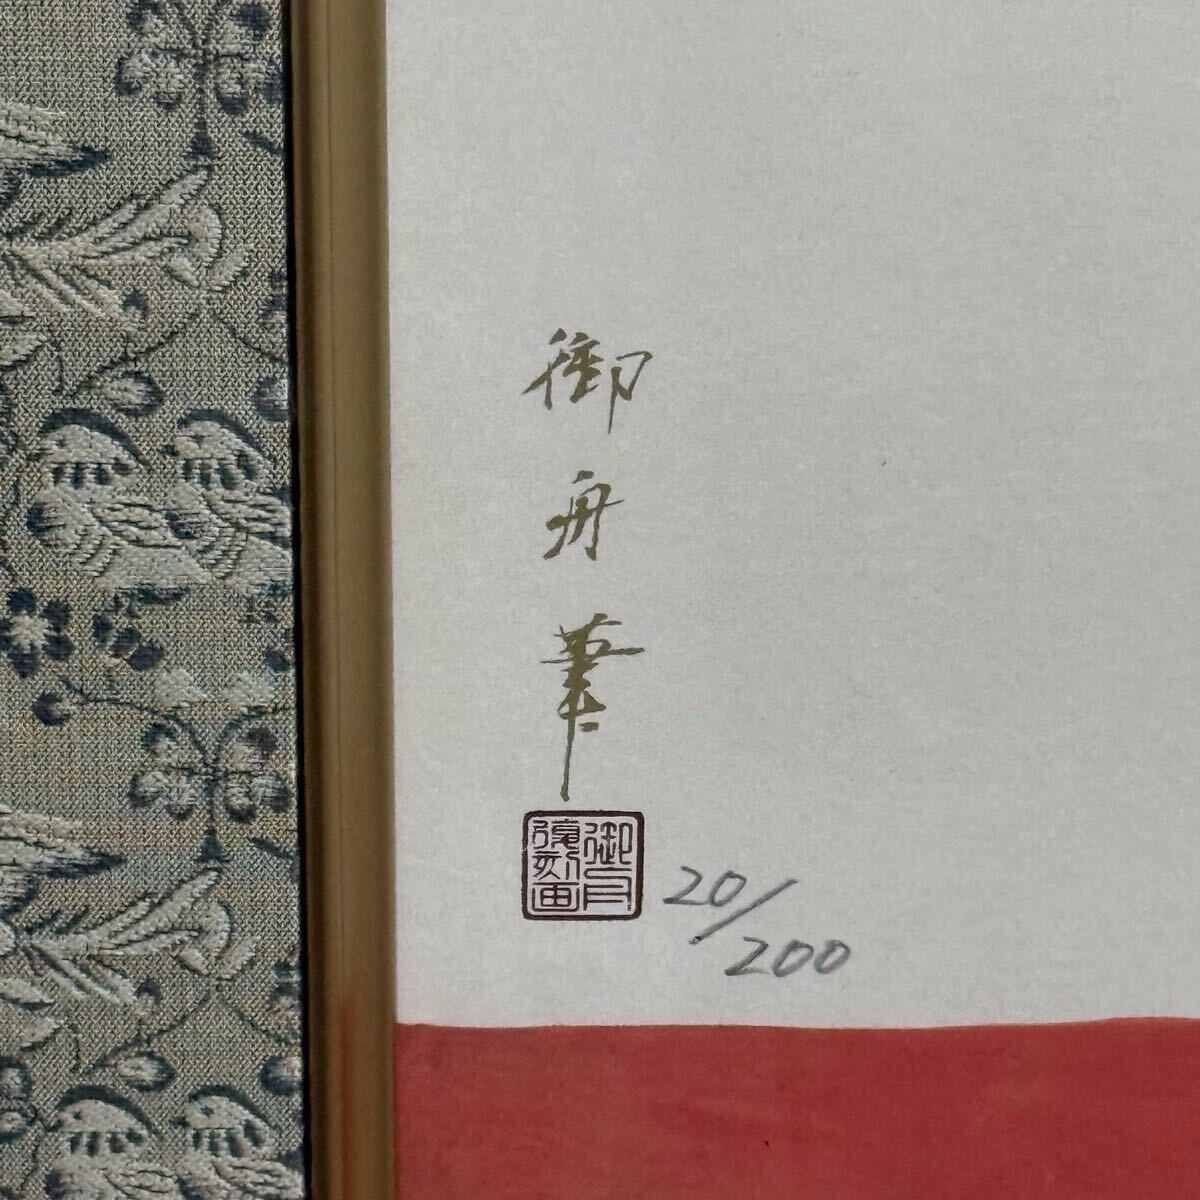 御舟筆
御舟
復刻画
20/200